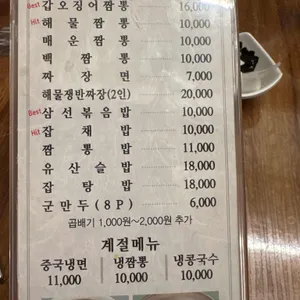 Best 갑오징어짬뽕 16,000
Hit 해물짬뽕 10,000
매운짬뽕 10,000
백짬뽕 10,000
짜장면 7,000
해물쟁반짜장(2인) 20,000
Best 삼선볶음밥 10,000
Hit 잡채밥 10,000
짬뽕밥 11,000
유산슬밥 18,000
잡탕밥 18,000
군만두(8P) 6,000
곱배기 1,000원~2,000원 추가
계절메뉴
중국냉면 냉짬뽕 냉콩국수
11,000 10,000 10,000